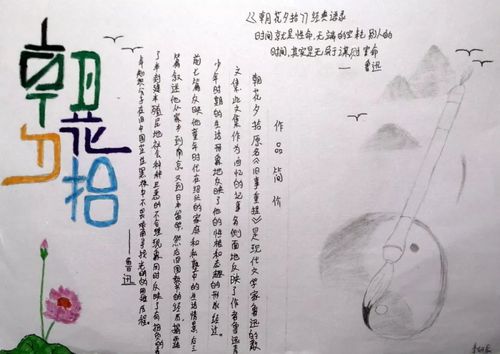 朝花夕拾
《朝花夕拾》经典语录
时间就是性命,无端的空耗别人的
时间,其实是无异于谋财害命
——鲁迅
作品简价
朝花夕拾原名《旧事重提》是现代文学家鲁迅的散
文集,此文集作为回忆的记事多侧面地反映了作者鲁迅青
少年时期的生活形象地反映了他的性格和志趣的形成经过。
前七篇反映他童年时代在绍兴的家庭和私塾中的生活情景,后三
篇叙述他从家乡到南京,又到日本留学,然后回国教书的经历,揭露
了半封建半殖民地社会种种丑恶的不合理现象同时反映了有抱负的青
年知识分子在旧中国茫茫黑夜中不畏艰难寻找光明的困难历程。
——鲁迅